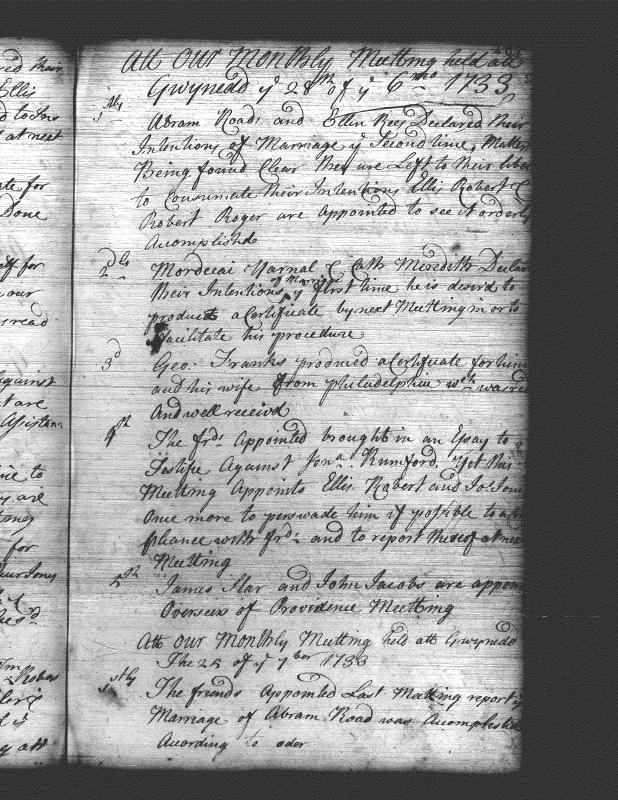 red their
Ellis
d to Ins
t at next
ate for
Done
elf for
our
read
against
t are
Assistan
ie to
y are
for
hes'd
Rober
att
Att Our Monthly Meetting held att
Gwynedd ye 28th of ye 6mo 1733
1stly
Abram Road and Ellin Rees Declared their
Intentions of Marriage ye Second time, Matters
Being found Clear they are Left to their liber
to Consumate their Intentions Ellis Robert &
Robert Roger are appointed to see it orderly
Acomplishd
2dly
Mordecai Yarnal & Cath Meredith Declar
of Marriage
their Intentions ye first time he is desir'd to
produce a Certificate by next Meetting in or to
facilitate his procedure
3d
Geo: Franks produced a Certificate for him
and his wife from philadelphia wch was re
And well receivd
4th
The frds Appointed brought in an Essay to
Testifie Against Jona Rumford. Yet this
Meetting Appoints Ellis Robert and Jo: Jon
Once more to perswade him if possible to a
pliance with frds and to report thereof at nex
Meetting
5th
James Star and John Jacobs are appoin
Overseers of Providence Meetting
Att our Monthly Meetting held att Gwynedd
The 25 of ye 7ber 1733
1stly
The friends Appointed Last Meetting report ye
Marriage of Abram Road was Acomplished
Acording to oder